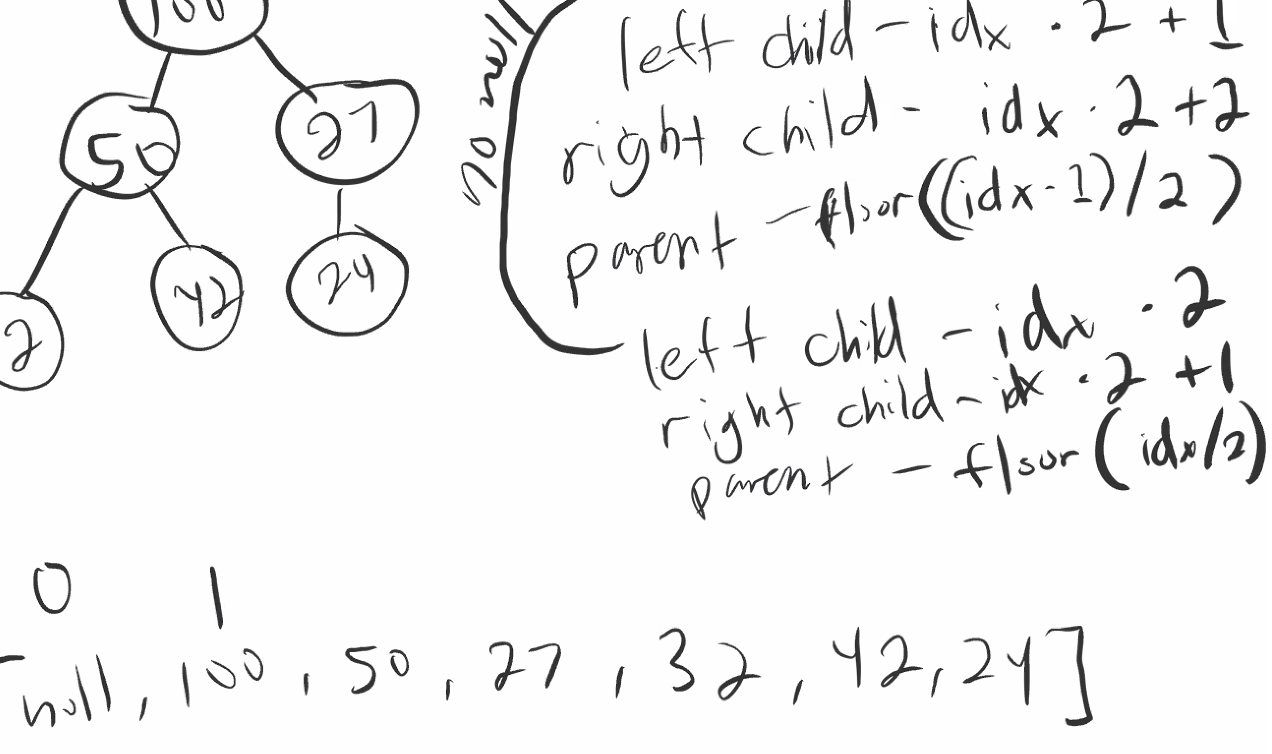 100
50
27
2
42
24
no null
left child - idx · 2 + 1
right child - idx · 2 + 2
parent - floor((idx - 1) / 2)
left child - idx · 2
right child - idx · 2 + 1
parent - floor(idx/2)
0 1
[null, 100, 50, 27, 32, 42, 24]